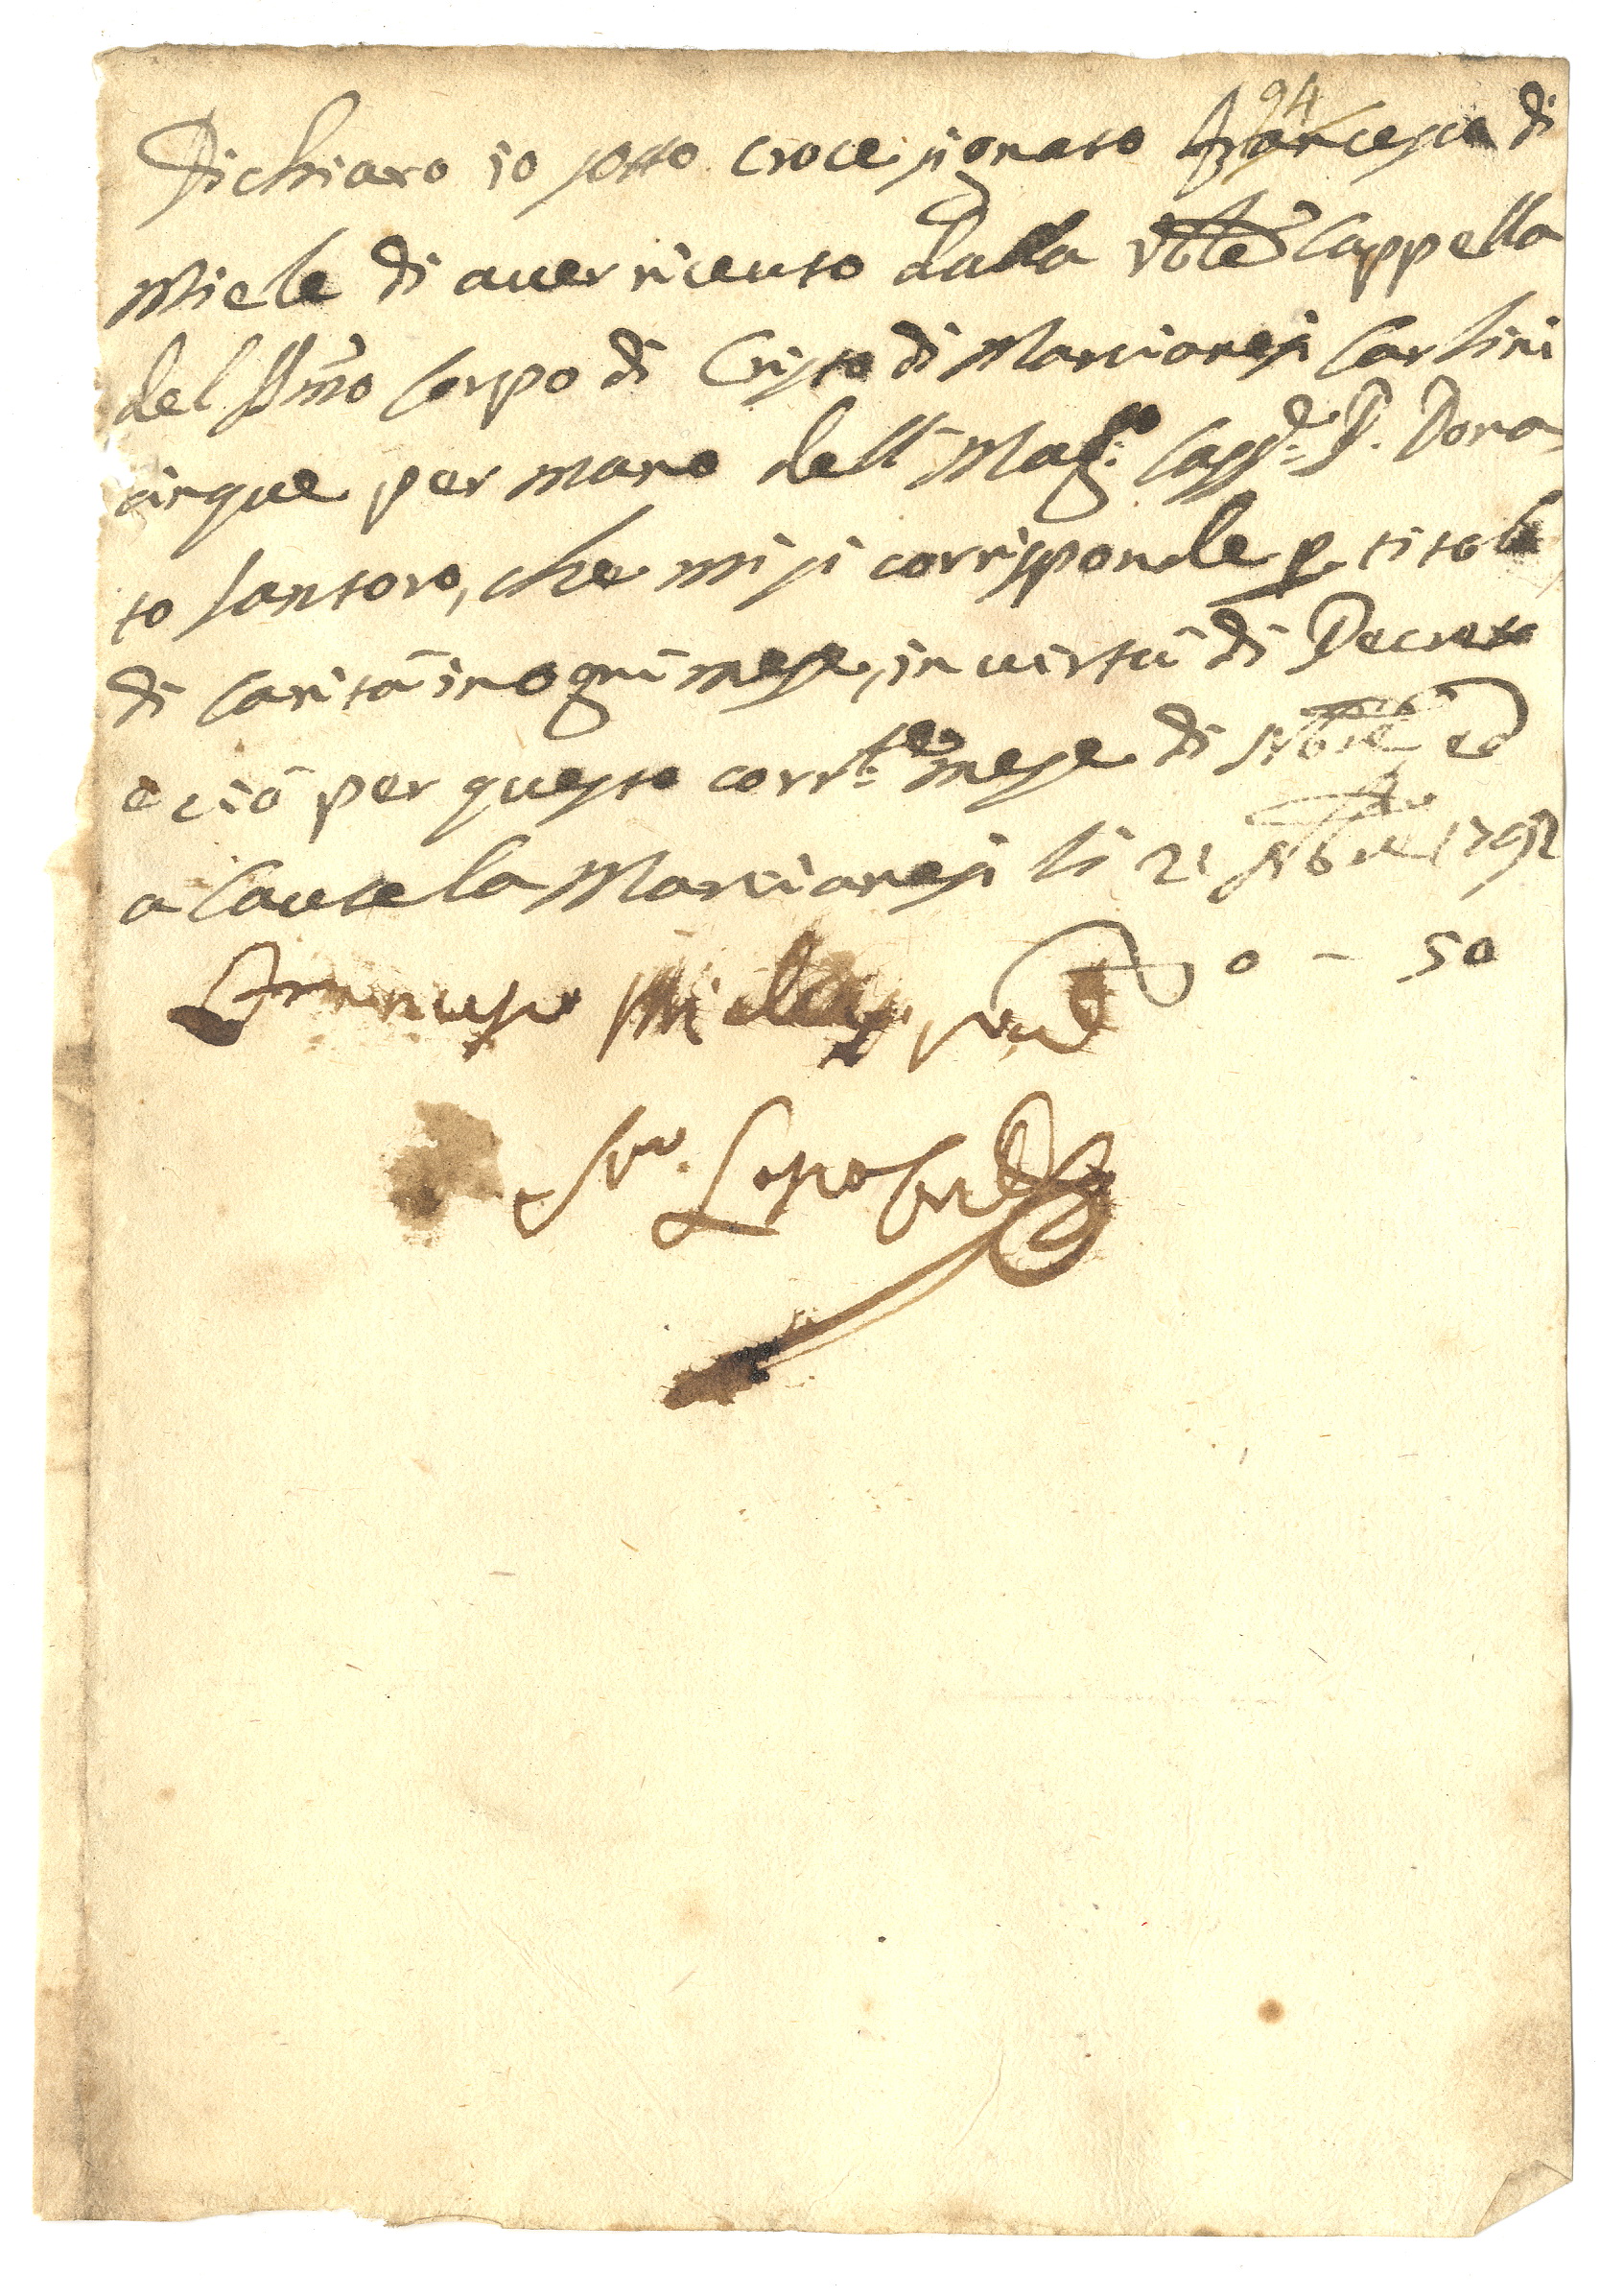 94
Dichiaro io sotto croce signato Francesco di
Miele di aver ricevuto dalla Vble Cappella
del SSmo Corpo di Cristo di Marcianesi Carlini
cinque per mano dell Mag:co D. Dona
to Santoro, che mi si corrisponde p titolo
di carità in ogni mese, in virtù di Decreto
e ciò per questo corr:te mese di Nbre ed
a cautela Marcianesi li 21 Nbre 1792
Francesco Miele
0 - 50